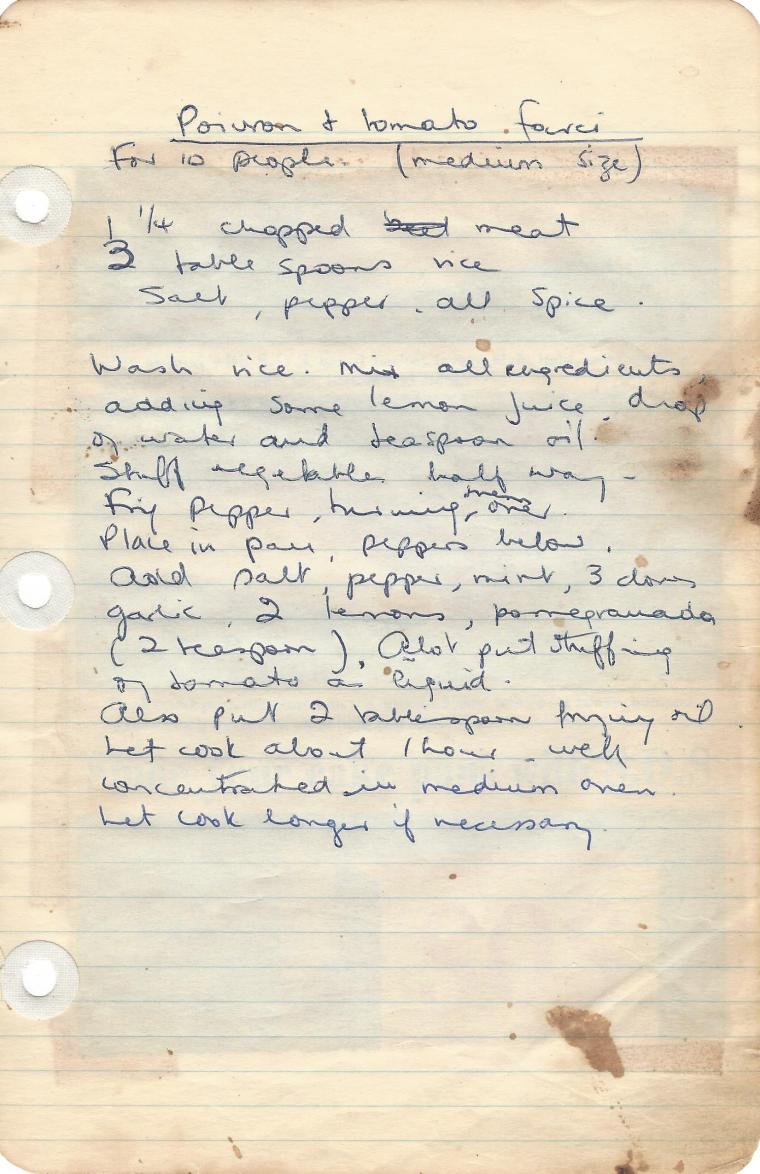 Poivron & tomato farci
For 10 people. (medium size)
1 1/4 chopped meat
3 table spoons rice
Salt, pepper, all spice.
Wash rice. Mix all ingredients,
adding some lemon juice, drop
of water and teaspoon oil.
Stuff vegetables half way -
Fry pepper, turning them over.
Place in pan, peppers below.
Add salt, pepper, mint, 3 cloves
garlic, 2 lemons, pomegranada
(2 teaspoon), put stuffing
of tomato as liquid.
Also put 2 tablespoon frying oil.
Let cook about 1 hour - well
concentrated in medium oven.
Let cook longer if necessary.